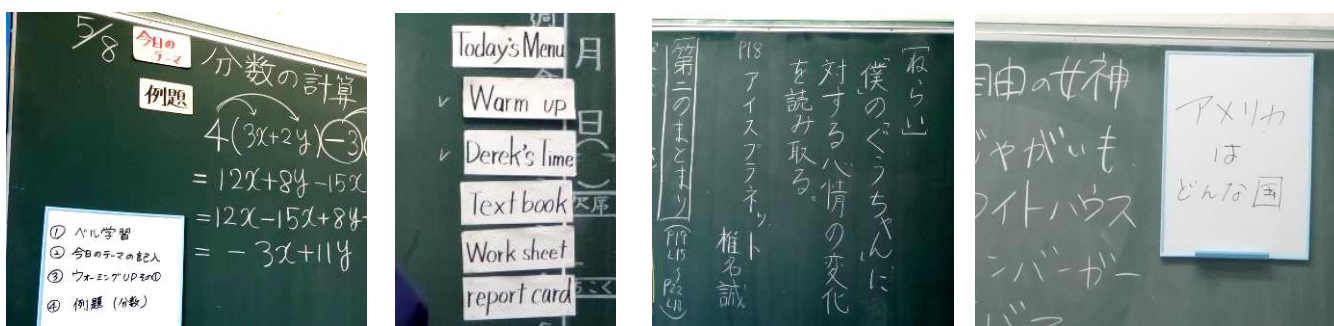 5/8
今日の
テーマ
分数の計算
例題
4(3x+2y)-3(
= 12x+8y-15x
= 12x-15x+8y-
= -3x+11y
① ベル学習
② 今日のテーマの記入
③ ウォーミングUPその①
④ 例題(分数)
Today's Menu
✓ Warm up
✓ Derek's Time
Textbook
Work sheet
report card
月
日
欠席
[ねらい]
「僕」の「ぐうちゃん」に
対する心情の変化
を読み取る。
P18 アイスプラネット
椎名誠
第二のまとまり
(P19 L15〜P22 L12)
自由の女神
じゃがいも
ワイトハウス
ンバーガー
アメリカ
は
どんな国